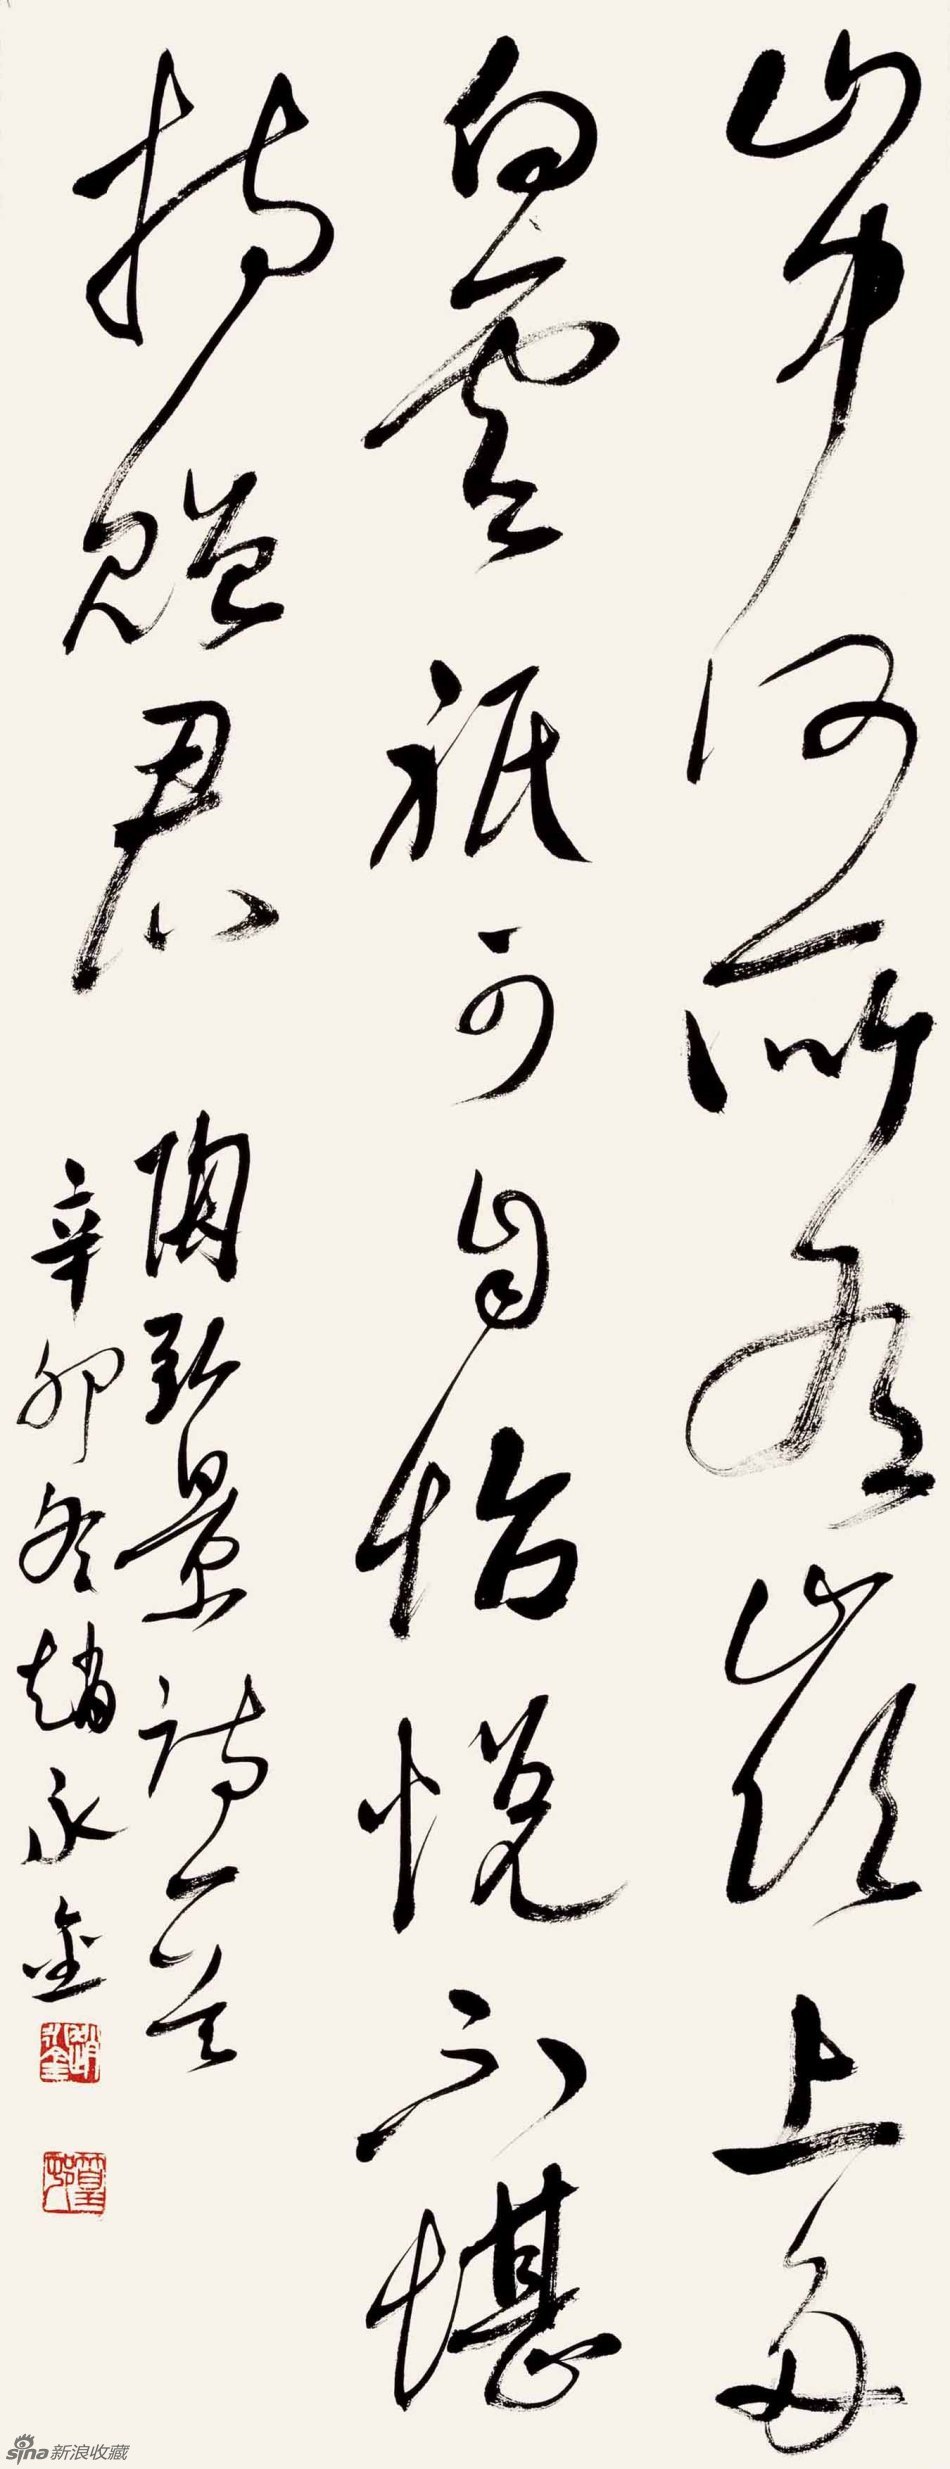 山中何所有嶺上多
白雲祇可自怡悅不堪
持贈君
陶弘景詩一首
辛卯冬趙永金
sina新浪收藏